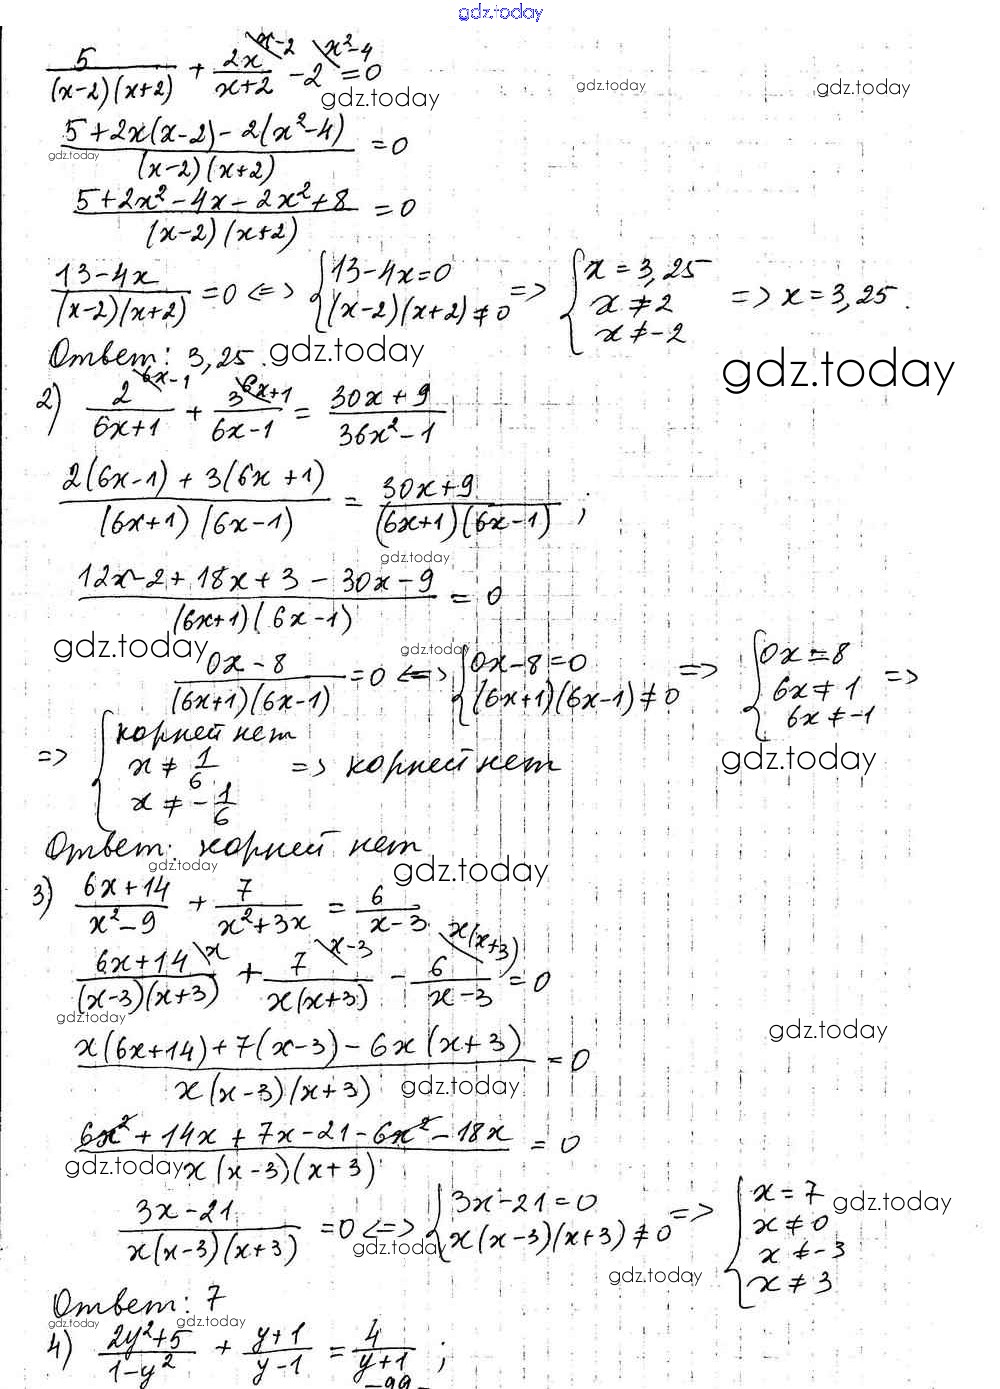 gdz.today
5/((x-2)(x+2)) + 2x/(x+2) \x-2 - 2 \x²-4 = 0
gdz.today gdz.today gdz.today
(5+2x(x-2)-2(x²-4))/((x-2)(x+2)) = 0
gdz.today
(5+2x²-4x-2x²+8)/((x-2)(x+2)) = 0
(13-4x)/((x-2)(x+2)) = 0 <=> { 13-4x=0 (x-2)(x+2)≠0 => { x=3,25 x≠2 x≠-2 => x=3,25.
Ответ: 3,25. gdz.today
gdz.today
2) 2/(6x+1) \6x-1 + 3/(6x-1) \6x+1 = (30x+9)/(36x²-1)
(2(6x-1)+3(6x+1))/((6x+1)(6x-1)) = (30x+9)/((6x+1)(6x-1)) ;
gdz.today
(12x-2+18x+3-30x-9)/((6x+1)(6x-1)) = 0
gdz.today gdz.today
(0x-8)/((6x+1)(6x-1)) = 0 <=> { 0x-8=0 (6x+1)(6x-1)≠0 => { 0x=8 6x≠1 6x≠-1 =>
gdz.today
=> { корней нет x≠1/6 x≠-1/6 => корней нет
Ответ: корней нет
gdz.today gdz.today
3) (6x+14)/(x²-9) + 7/(x²+3x) = 6/(x-3)
(6x+14)/((x-3)(x+3)) \x + 7/(x(x+3)) \x-3 - 6/(x-3) \x(x+3) = 0
gdz.today gdz.today
(x(6x+14)+7(x-3)-6x(x+3))/(x(x-3)(x+3)) = 0
gdz.today
(6x²+14x+7x-21-6x²-18x)/(x(x-3)(x+3)) = 0
gdz.today
(3x-21)/(x(x-3)(x+3)) = 0 <=> { 3x-21=0 x(x-3)(x+3)≠0 => { x=7 x≠0 x≠-3 x≠3
gdz.today gdz.today gdz.today
Ответ: 7
gdz.today gdz.today
4) (2y²+5)/(1-y²) + (y+1)/(y-1) = 4/(y+1) ;
-99-